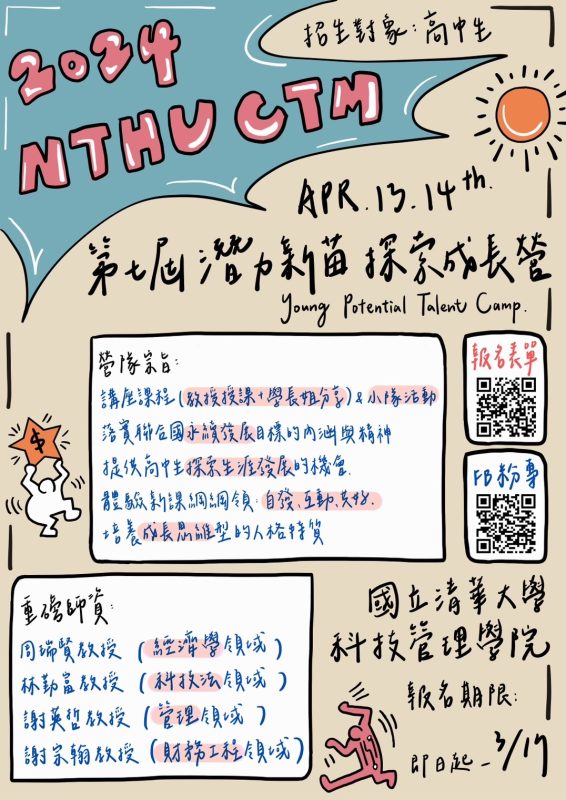 2024
NTHU CTM
招生對象：高中生
APR.13.14th.
第七屆潛力新苗探索成長營
Young Potential Talent Camp.
營隊宗旨：
講座課程(教授授課+學長姐分享)&小隊活動
落實聯合國永續發展目標的內涵與精神
提供高中生探索生涯發展的機會.
體驗新課綱綱領：自發、互動、共好.
培養成長思維型的人格特質
報名表單
FB粉專
$
重磅師資：
周瑞賢教授 (經濟學領域)
林勤富教授 (科技法領域)
謝英哲教授 (管理領域)
謝宗翰教授 (財務工程領域)
國立清華大學
科技管理學院
報名期限：
即日起-3/17